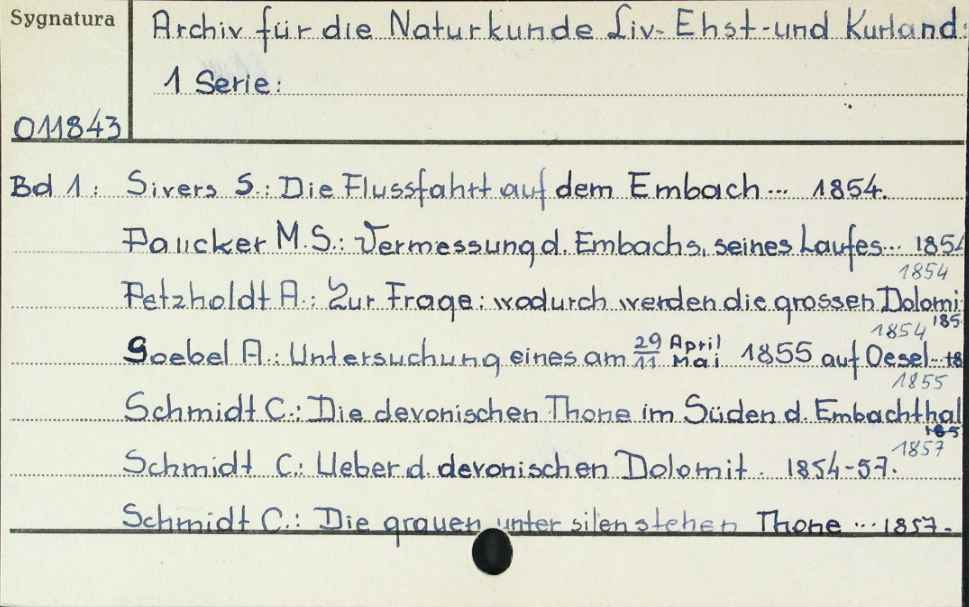 Sygnatura
Archiv für die Naturkunde Liv- Ehst-und Kurland:
1 Serie:
011843
Bd 1: Sivers S.: Die Flussfahrt auf dem Embach... 1854.
Paucker M.S.: Vermessung d. Embachs, seines Laufes... 1854
1854
Petzholdt A.: Zur Frage: wodurch werden die grossen Dolomi
185
1854
Goebel A.: Untersuchung eines am 29/11 April/Mai 1855 auf Oesel... 18
1855
Schmidt C.: Die devonischen Thone im Süden d. Embachthal
185
1857
Schmidt C.: Ueber d. devonischen Dolomit. 1854-57.
Schmidt C.: Die grauen unter silen stehen Thone ... 1857.